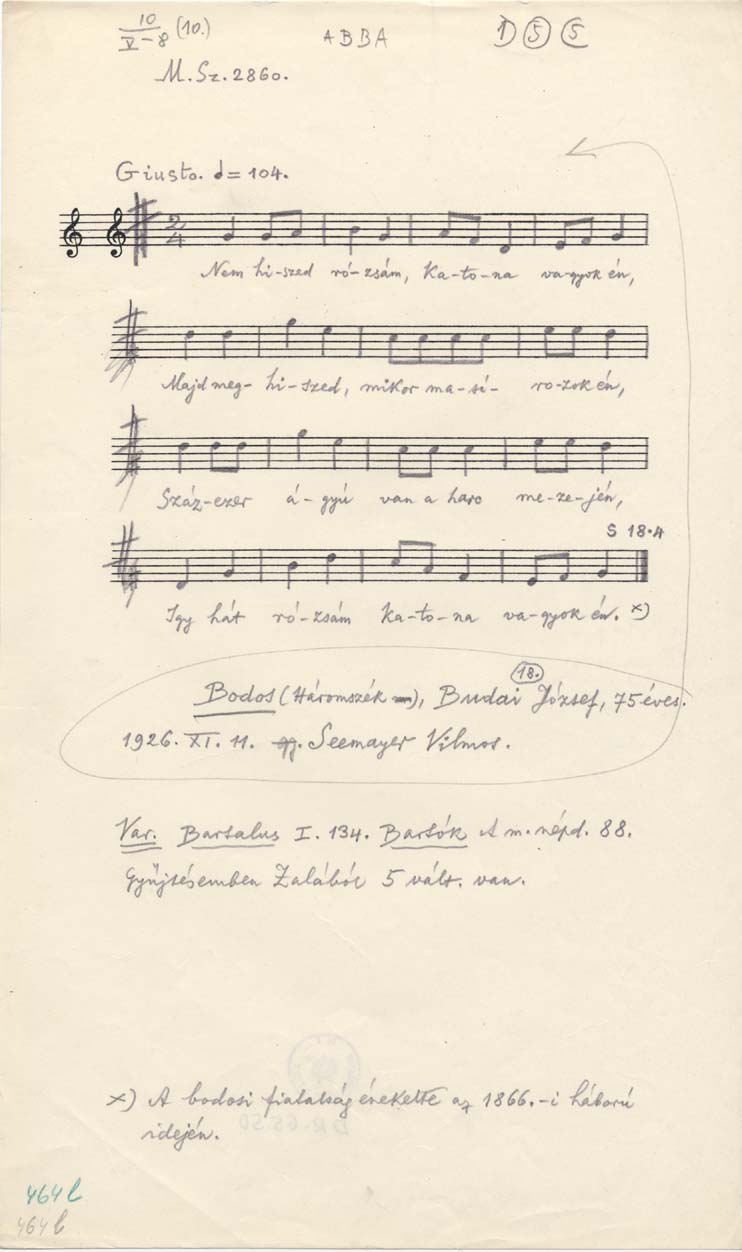 10 (10.) ABBA 1) 5 5
V–8
M. Sz. 2860.
Giusto. = 104.
2
4
Nem hi-szed ró-zsám, ka-to-na va-gyok én,
Majd meg-hi-szed, mikor ma-si-ro-zok én,
Száz-ezer á-gyú van a harc me-ze-jén,
S 18.A
Igy hát ró-zsám ka-to-na va-gyok én. x)
18.
Bodos (Háromszék), Budai József, 75 éves.
1926. XI. 11. gy. Seemayer Vilmos.
Var. Bartalus I. 134. Bartók A m. népd. 88.
Gyűjtésemben Zalából 5 vált. van.
x) A bodosi fiatalság énekelte az 1866.-i háború
idején.
464 b
464 b